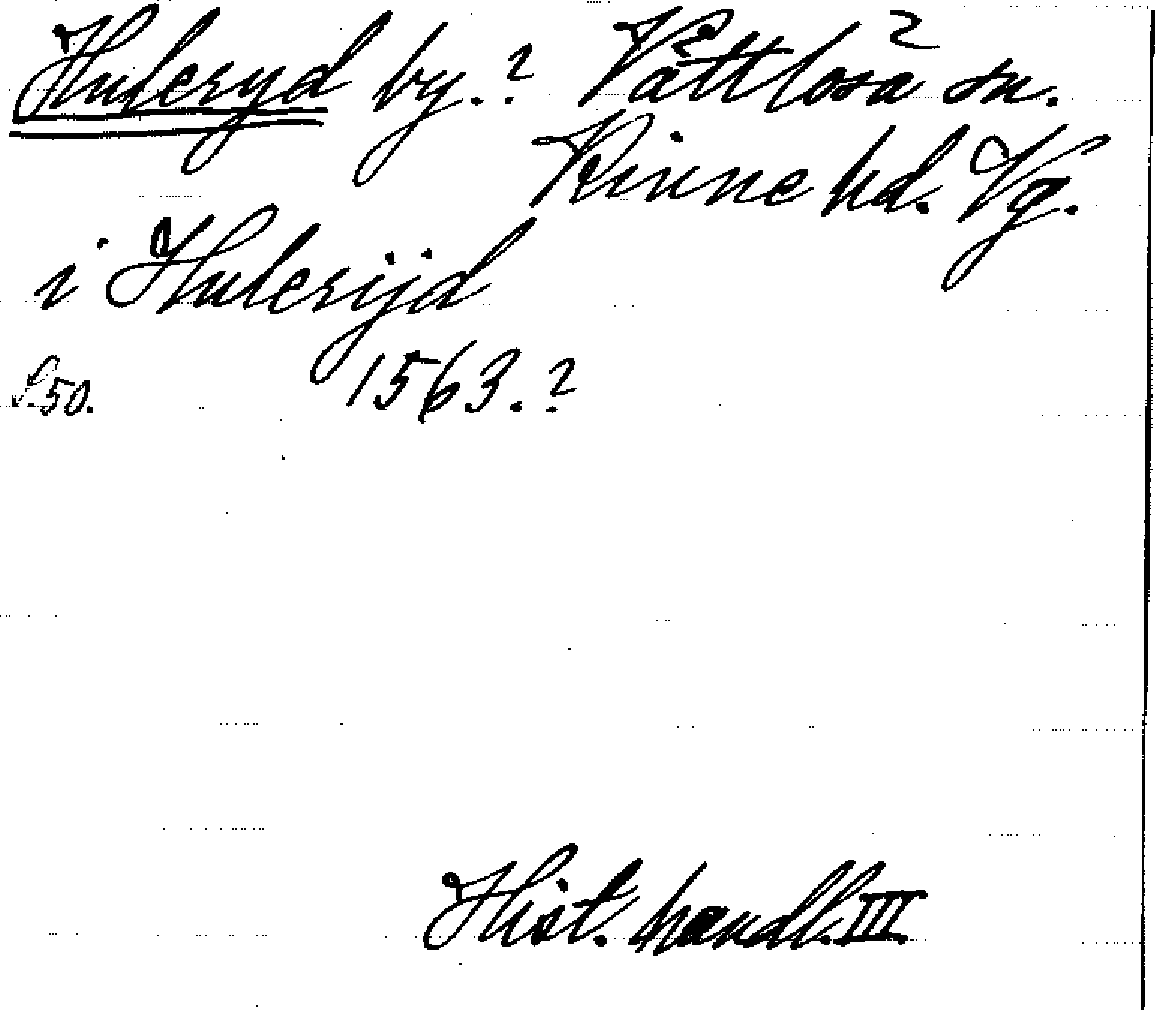 Huleryd by.? Vättlösa sn.
Kinne hd. Vg.
i Hulerijd
S. 50. 1563.?
Hist. handl. III.